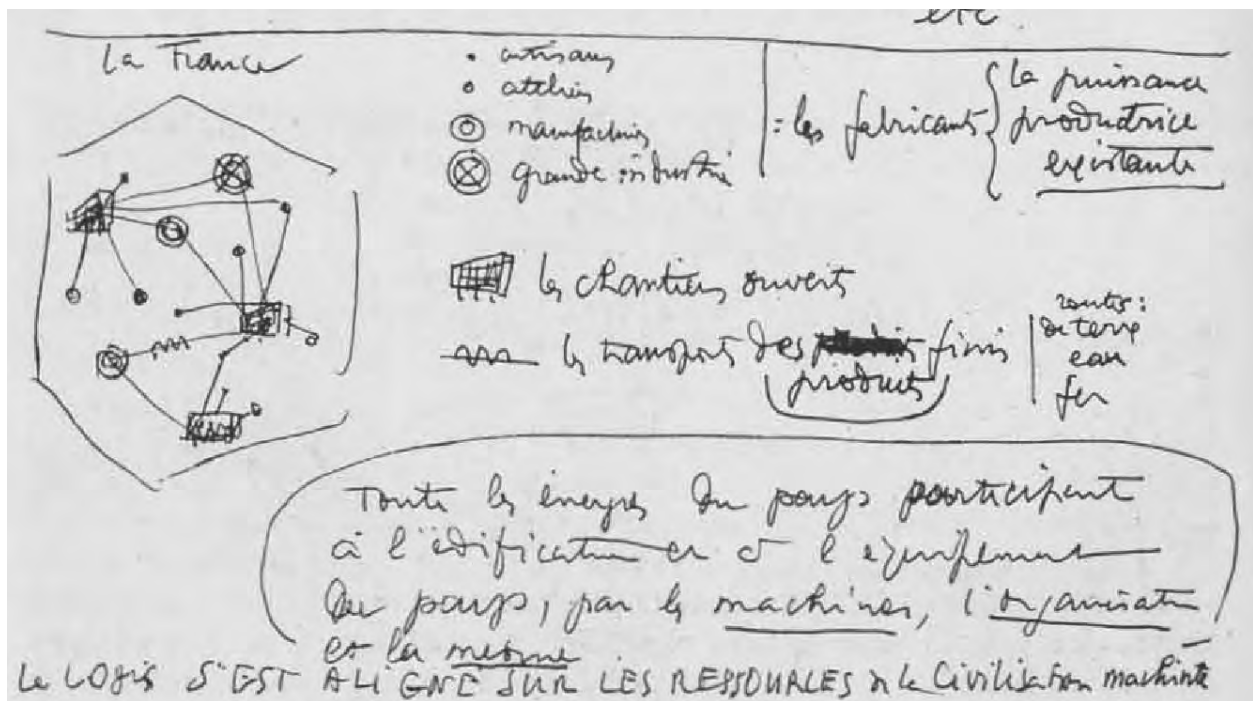 etc
La France
• artisans
• ateliers
manufactures
grande industrie
= les fabricants { la puissance
productrice
existante
les chantiers ouverts
les transports des produits finis
routes :
de terre
eau
fer
Toute les énergies du pays participant
à l'édification et à l'équipement
du pays, par les machines, l'organisation
et la mesure
Le LOGIS S'EST ALIGNÉ SUR LES RESSOURCES de la Civilisation machiniste